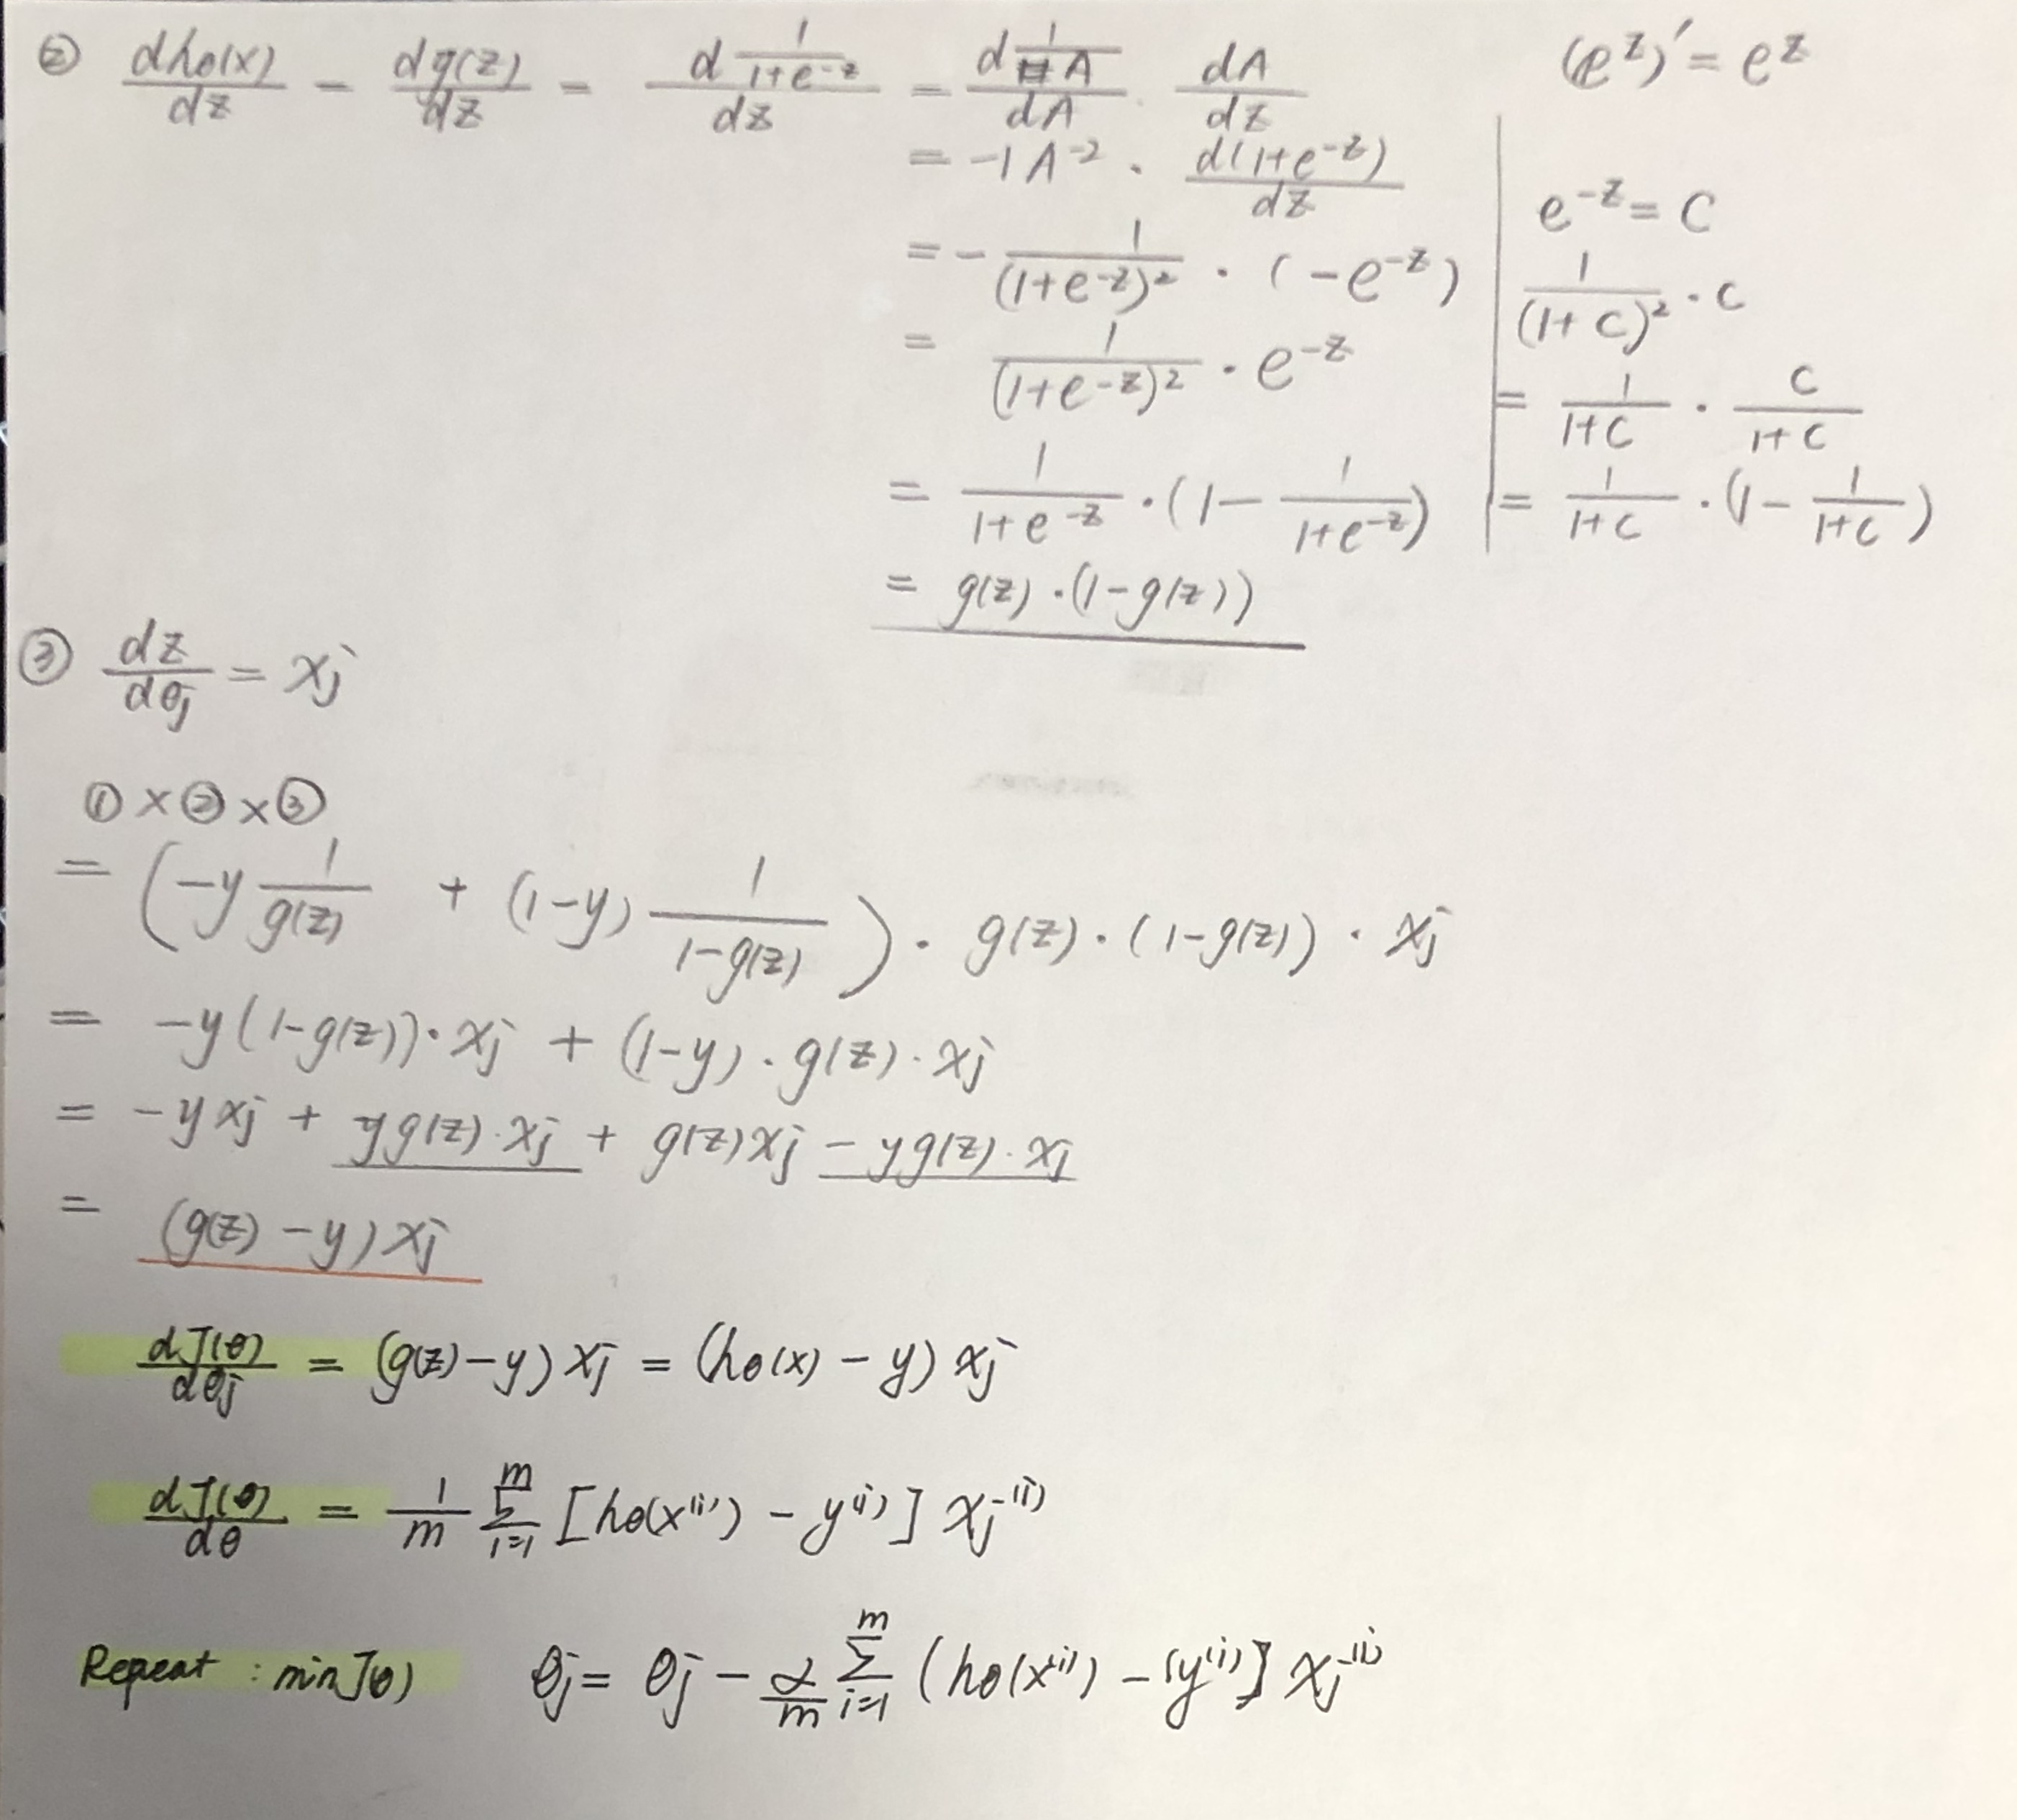 ② dhθ(x)/dz = dg(z)/dz = d 1/(1+e^-z) / dz = d 1/A / dA · dA/dz    (e^z)' = e^z
= -1A^-2 · d(1+e^-z)/dz
= - 1/(1+e^-z)^2 · (-e^-z)
= 1/(1+e^-z)^2 · e^-z
= 1/(1+e^-z) · (1 - 1/(1+e^-z))
= g(z) · (1-g(z))
e^-z = C
1/(1+C)^2 · C
= 1/(1+C) · C/(1+C)
= 1/(1+C) · (1 - 1/(1+C))
③ dz/dθj = xj
① × ② × ③
= (-y 1/g(z) + (1-y) 1/(1-g(z))) · g(z) · (1-g(z)) · xj
= -y(1-g(z)) · xj + (1-y) · g(z) · xj
= -y xj + y g(z) · xj + g(z) xj - y g(z) · xj
= (g(z) - y) xj
dJ(θ)/dθj = (g(z)-y) xj = (hθ(x) - y) xj
dJ(θ)/dθ = 1/m Σ_{i=1}^{m} [hθ(x^(i)) - y^(i)] xj^(i)
Repeat : min J(θ)    θj = θj - α/m Σ_{i=1}^{m} (hθ(x^(i)) - (y^(i)] xj^(i)